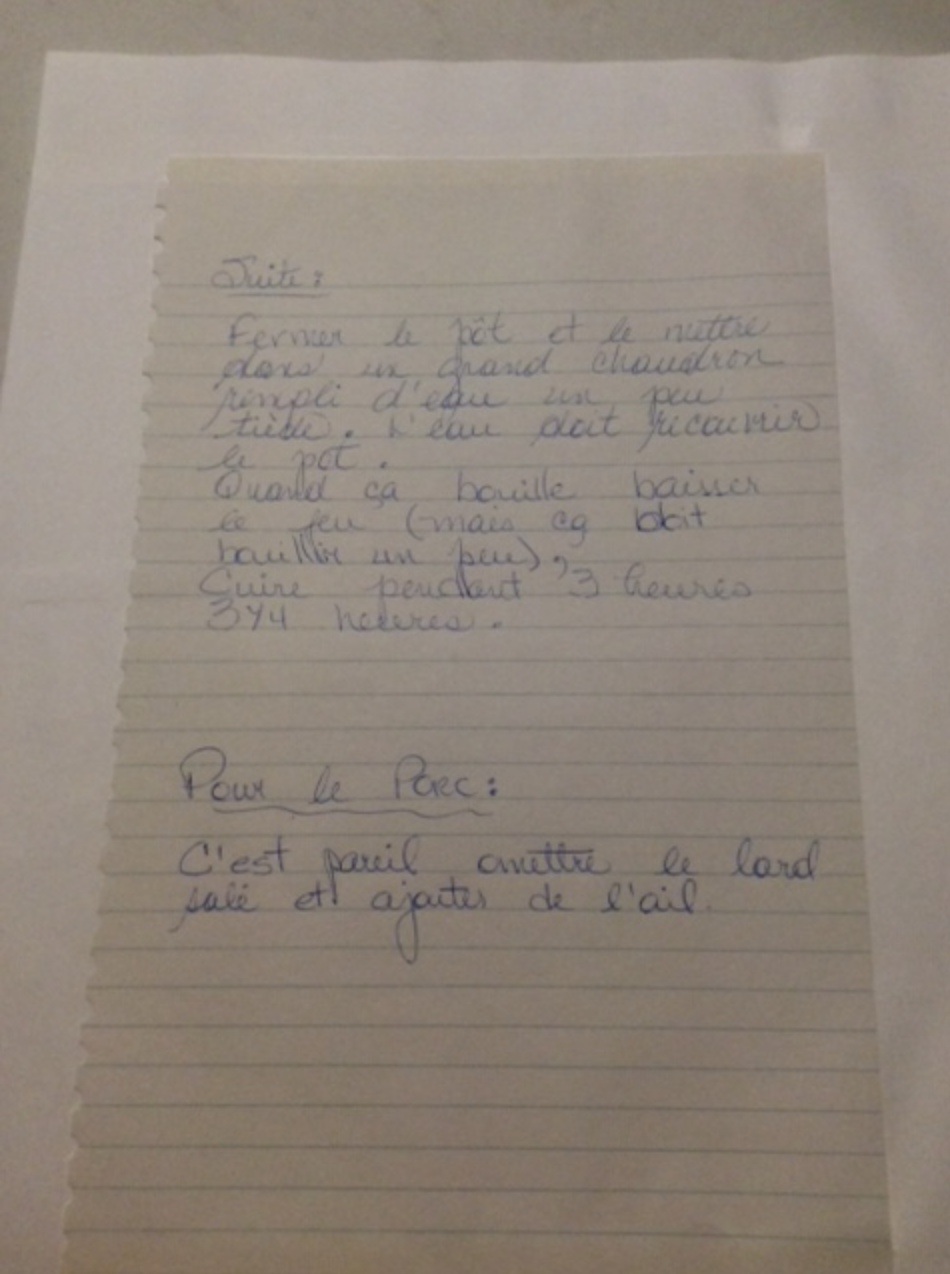 Suite :
Fermer le pôt et le mettre
dans un grand chaudron
rempli d'eau un peu
tiède. L'eau doit recouvrir
le pot.
Quand ça bouille baisser
le feu (mais ça doit
bouillir un peu),
Cuire pendant 3 heures
3¼ heures.
Pour le Porc :
C'est pareil omettre le lard
salé et ajouter de l'ail.